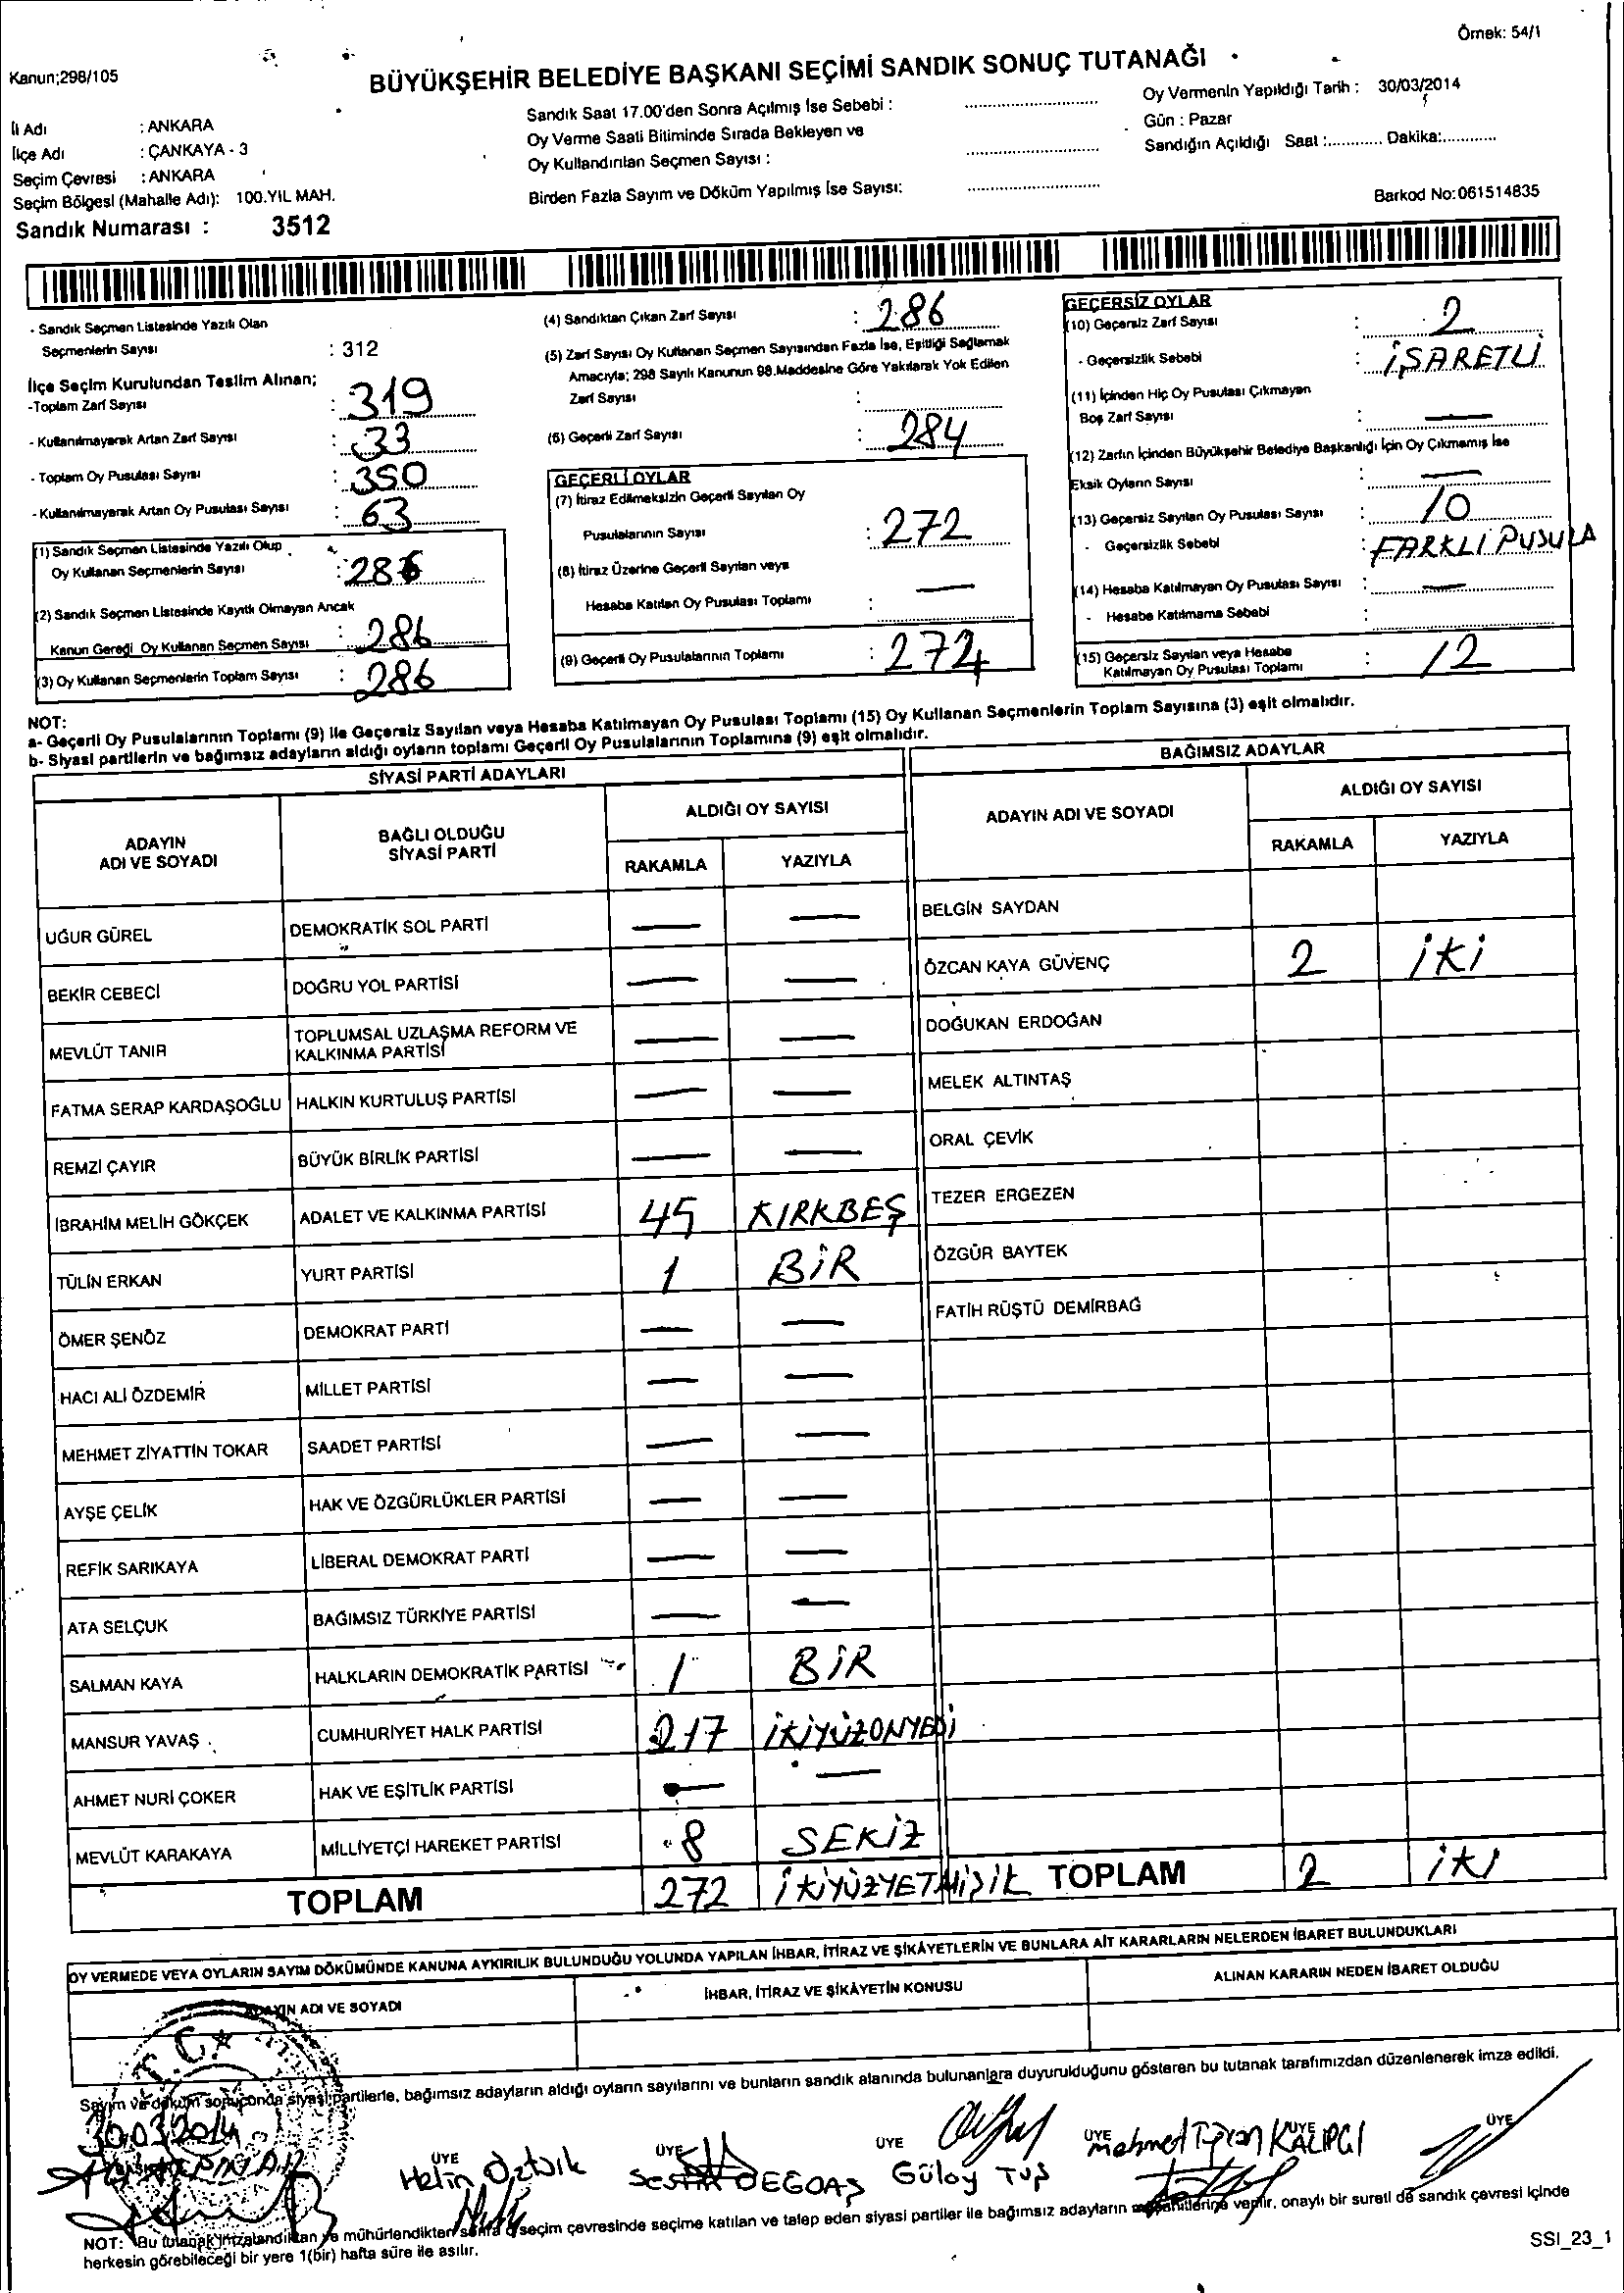 Örnek: 54/1
Kanun;298/105
BÜYÜKŞEHİR BELEDİYE BAŞKANI SEÇİMİ SANDIK SONUÇ TUTANAĞI
İli Adı : ANKARA
İlçe Adı : ÇANKAYA - 3
Seçim Çevresi : ANKARA
Seçim Bölgesi (Mahalle Adı): 100.YIL MAH.
Sandık Numarası : 3512
Sandık Saat 17.00'den Sonra Açılmış İse Sebebi :
Oy Verme Saati Bitiminde Sırada Bekleyen ve
Oy Kullandırılan Seçmen Sayısı :
Birden Fazla Sayım ve Döküm Yapılmış İse Sayısı:
Oy Vermenin Yapıldığı Tarih : 30/03/2014
Gün : Pazar
Sandığın Açıldığı Saat :............ Dakika:............
Barkod No:061514835
- Sandık Seçmen Listesinde Yazılı Olan
Seçmenlerin Sayısı : 312
İlçe Seçim Kurulundan Teslim Alınan;
-Toplam Zarf Sayısı : 319
- Kullanılmayarak Artan Zarf Sayısı : 33
- Toplam Oy Pusulası Sayısı : 350
- Kullanılmayarak Artan Oy Pusulası Sayısı : 63
(1) Sandık Seçmen Listesinde Yazılı Olup
Oy Kullanan Seçmenlerin Sayısı : 286
(2) Sandık Seçmen Listesinde Kayıtlı Olmayan Ancak
Kanun Gereği Oy Kullanan Seçmen Sayısı : 286
(3) Oy Kullanan Seçmenlerin Toplam Sayısı : 286
(4) Sandıktan Çıkan Zarf Sayısı : 286
(5) Zarf Sayısı Oy Kullanan Seçmen Sayısından Fazla İse, Eşitliği Sağlamak
Amacıyla; 298 Sayılı Kanunun 98.Maddesine Göre Yakılarak Yok Edilen
Zarf Sayısı :
(6) Geçerli Zarf Sayısı : 284
GEÇERLİ OYLAR
(7) İtiraz Edilmeksizin Geçerli Sayılan Oy
Pusulalarının Sayısı : 272
(8) İtiraz Üzerine Geçerli Sayılan veya
Hesaba Katılan Oy Pusulası Toplamı : —
(9) Geçerli Oy Pusulalarının Toplamı : 274
GEÇERSİZ OYLAR
(10) Geçersiz Zarf Sayısı : 2
- Geçersizlik Sebebi : İŞARETLİ
(11) İçinden Hiç Oy Pusulası Çıkmayan
Boş Zarf Sayısı : —
(12) Zarfın İçinden Büyükşehir Belediye Başkanlığı İçin Oy Çıkmamış İse
Eksik Oyların Sayısı : —
(13) Geçersiz Sayılan Oy Pusulası Sayısı : 10
- Geçersizlik Sebebi : FARKLI PUSULA
(14) Hesaba Katılmayan Oy Pusulası Sayısı : —
- Hesaba Katılmama Sebebi :
(15) Geçersiz Sayılan veya Hesaba
Katılmayan Oy Pusulası Toplamı : 12
NOT:
a- Geçerli Oy Pusulalarının Toplamı (9) ile Geçersiz Sayılan veya Hesaba Katılmayan Oy Pusulası Toplamı (15) Oy Kullanan Seçmenlerin Toplam Sayısına (3) eşit olmalıdır.
b- Siyasi partilerin ve bağımsız adayların aldığı oyların toplamı Geçerli Oy Pusulalarının Toplamına (9) eşit olmalıdır.
SİYASİ PARTİ ADAYLARI
ADAYIN ADI VE SOYADI
BAĞLI OLDUĞU SİYASİ PARTİ
ALDIĞI OY SAYISI
RAKAMLA YAZIYLA
UĞUR GÜREL DEMOKRATİK SOL PARTİ — —
BEKİR CEBECİ DOĞRU YOL PARTİSİ — —
MEVLÜT TANIR TOPLUMSAL UZLAŞMA REFORM VE KALKINMA PARTİSİ — —
FATMA SERAP KARDAŞOĞLU HALKIN KURTULUŞ PARTİSİ — —
REMZİ ÇAYIR BÜYÜK BİRLİK PARTİSİ — —
İBRAHİM MELİH GÖKÇEK ADALET VE KALKINMA PARTİSİ 45 KIRKBEŞ
TÜLİN ERKAN YURT PARTİSİ 1 BİR
ÖMER ŞENÖZ DEMOKRAT PARTİ — —
HACI ALİ ÖZDEMİR MİLLET PARTİSİ — —
MEHMET ZİYATTİN TOKAR SAADET PARTİSİ — —
AYŞE ÇELİK HAK VE ÖZGÜRLÜKLER PARTİSİ — —
REFİK SARIKAYA LİBERAL DEMOKRAT PARTİ — —
ATA SELÇUK BAĞIMSIZ TÜRKİYE PARTİSİ — —
SALMAN KAYA HALKLARIN DEMOKRATİK PARTİSİ 1 BİR
MANSUR YAVAŞ CUMHURİYET HALK PARTİSİ 217 İKİYÜZONYEDİ
AHMET NURİ ÇOKER HAK VE EŞİTLİK PARTİSİ — —
MEVLÜT KARAKAYA MİLLİYETÇİ HAREKET PARTİSİ 8 SEKİZ
TOPLAM 272 İKİYÜZYETMİŞİK
BAĞIMSIZ ADAYLAR
ADAYIN ADI VE SOYADI
ALDIĞI OY SAYISI
RAKAMLA YAZIYLA
BELGİN SAYDAN
ÖZCAN KAYA GÜVENÇ 2 İKİ
DOĞUKAN ERDOĞAN
MELEK ALTINTAŞ
ORAL ÇEVİK
TEZER ERGEZEN
ÖZGÜR BAYTEK
FATİH RÜŞTÜ DEMİRBAĞ
TOPLAM 2 İKİ
OY VERMEDE VEYA OYLARIN SAYIM DÖKÜMÜNDE KANUNA AYKIRILIK BULUNDUĞU YOLUNDA YAPILAN İHBAR, İTİRAZ VE ŞİKÂYETLERİN VE BUNLARA AİT KARARLARIN NELERDEN İBARET BULUNDUKLARI
ADAYIN ADI VE SOYADI
İHBAR, İTİRAZ VE ŞİKÂYETİN KONUSU
ALINAN KARARIN NEDEN İBARET OLDUĞU
T.C.
Sayım ve döküm sonucunda siyasi partilerle, bağımsız adayların aldığı oyların sayılarını ve bunların sandık alanında bulunanlara duyurulduğunu gösteren bu tutanak tarafımızdan düzenlenerek imza edildi.
30.03.2014
ÜYE ÜYE ÜYE ÜYE ÜYE
Helin Öztürk
Gülay Tuş
NOT: Bu tutanak imzalandıktan ve mühürlendikten sonra o seçim çevresinde seçime katılan ve talep eden siyasi partiler ile bağımsız adayların müşahitlerine verilir, onaylı bir sureti de sandık çevresi içinde
herkesin görebileceği bir yere 1(bir) hafta süre ile asılır.
SSI_23_1